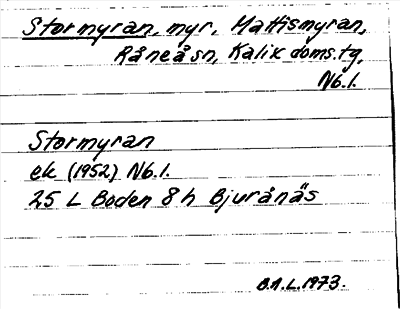 Stormyran, myr, Mattismyran,
Råneå sn, Kalix doms.tg,
Nb.l.
Stormyran
ek (1952) Nb.l.
25 L Boden 8 h Bjurånäs
B.A.L. 1973.